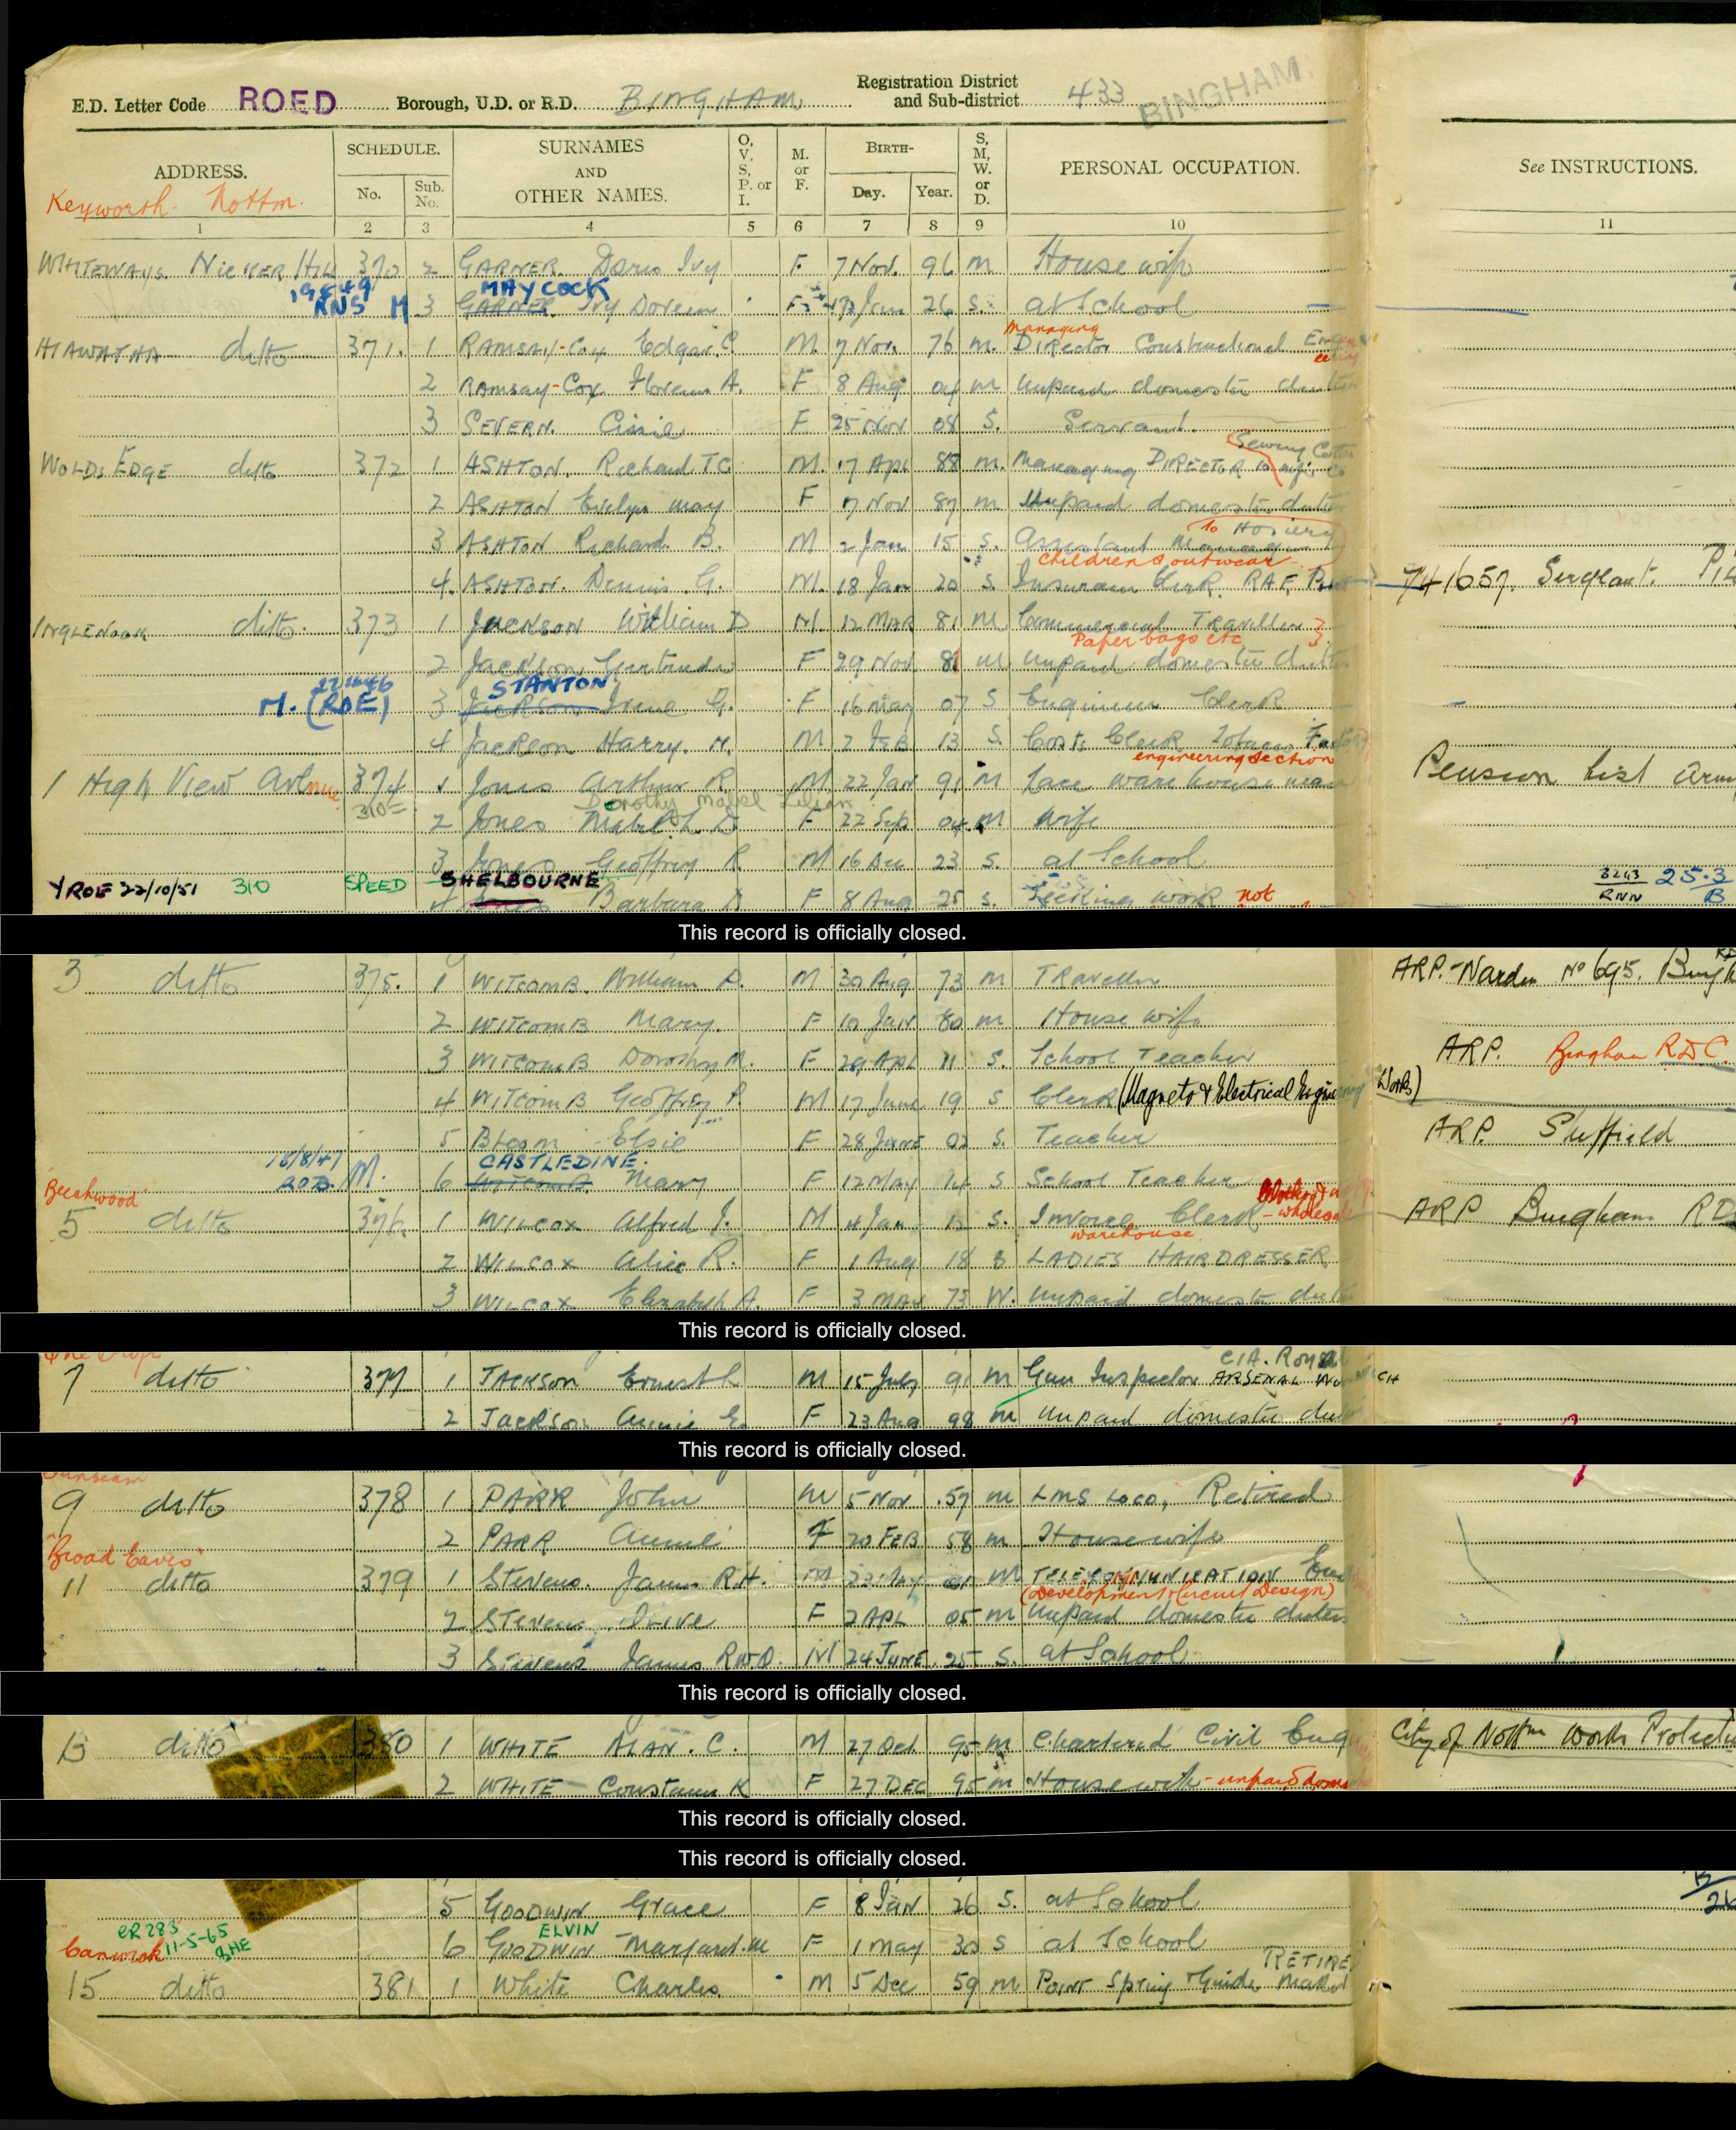 E.D. Letter Code ROED Borough, U.D. or R.D. BINGHAM. Registration District and Sub-district 433 BINGHAM.
ADDRESS. SCHEDULE. No. Sub. No. SURNAMES AND OTHER NAMES. O, V, S, P. or I. M. or F. BIRTH- Day. Year. S, M, W. or D. PERSONAL OCCUPATION. See INSTRUCTIONS.
Keyworth. Nottm.
1 2 3 4 5 6 7 8 9 10 11
WHITEWAYS. NICKER HILL 370 2 GARNER Doris Ivy F. 7 Nov. 96 m Housewife
MAYCOCK
M 3 GARNER Ivy Doreen F Jan 26 s. at School
managing
HIAWATHA ditto 371. 1 RAMSAY-Cox Edgar C. M. 7 Nov. 76 m. Director Constructional
2 RAMSAY-Cox Florence A. F 8 Aug 04 m unpaid domestic duties
3 SEVERN. Cissie F 25 Nov 08 S. Servant.
Sewing Cotton
WOLDS EDGE ditto 372 1 ASHTON. Richard T C M. 17 Apl 88 m. Managing DIRECTOR to
2 ASHTON Evelyn may F 7 Nov 87 m Unpaid domestic duties
to Hosiery
3 ASHTON Richard. B. M 2 Jan 15 s. Assistant Manager
Children's outwear
4. ASHTON. Dennis. G. M. 18 Jan 20 s Insurance Clerk. RAF, 741657. Sergeant.
INGLENOOK ditto 373 1 JACKSON William D M. 12 MAR 81 M Commercial Traveller
Paper bags etc
2 Jackson Gertrude F 29 Nov 81 m unpaid domestic duties
STANTON
M. (ROE) 3 Jackson Irene G. F 16 may 07 S Enquiries Clerk
4 Jackson Harry. M 2 FEB 13 S. Costs Clerk Tobacco Factory
engineering section
1 High View Avenue 374 1 Jones Arthur R. M 22 Jan 91 M Lace warehouseman Pension list Army
310 Dorothy Mabel Lilian
2 Jones Mabel L. D F 22 Sep 04 M Wife
3 Jones Geoffrey R M 16 Dec 23 s. at School
YROE 22/10/51 310 SPEED SHELBOURNE 3243 RNN 25.3 B
4 Jones Barbara D F 8 Aug 25 s. Seeking work not
This record is officially closed.
3 ditto 375. 1 WITCOMB. William D. M 30 Aug 73 m TRaveller ARP.-Warden No 695.
2 WITCOMB Mary. F 10 JAN 80 m House wife
3 WITCOMB Dorothy M. F 29 APL 11 S. School Teacher ARP. Bingham R.D.C.
4 WITCOMB Geoffrey P. M 17 June 19 S Clerk (Magneto & Electrical Engineering Works)
5 Bloom Elsie F 28 June 02 S. Teacher ARP. Sheffield
CASTLEDINE.
18/8/47 M. 6 WITCOMB Mary F 12 May 14 S School Teacher
Beechwood
5 ditto 376 1 WILCOX Alfred J. M 4 Jan S. Invoice Clerk - wholesale ARP Bingham RD
warehouse.
2 WILCOX Alice R. F 1 Aug 18 S LADIES HAIRDRESSER
3 WILCOX Elizabeth A. F 3 MAY 73 W. Unpaid domestic duties
This record is officially closed.
CIA. Royal
7 ditto 377 1 JACKSON Ernest M 15 July 91 m Gun Inspector ARSENAL
2 Jackson Annie E. F 23 Aug 98 m unpaid domestic duties
This record is officially closed.
Sunbeam
9 ditto 378 1 PARR John M 5 Nov .57 m LMS LOCO, Retired
2 PARR Annie F 20 FEB 58 m Housewife
"Broad Eaves"
11 ditto 379 1 Stevens. James R.H. M 23 May 01 M TELECOMMUNICATION
(Development & Circuit Design)
2 Stevens Irive F 2 APL 05 m Unpaid domestic duties
3 Stevens James R.W.D. M 24 JUNE 25 S. at School
This record is officially closed.
13 ditto 380 1 WHITE ALAN. C. M 27 Oct 95 m Chartered Civil City of Nottm Works
2 WHITE Constance K F 27 DEC 95 m Housewife - unpaid
This record is officially closed.
This record is officially closed.
5 GOODWIN Grace F 8 JAN 26 S. at School
ER283 ELVIN
11-5-65 6 GOODWIN Margaret. M F 1 May 30 S at School
RETIRED
15 ditto 381 1 White Charles M 5 Dec 59 m Point Spring & Guide Maker